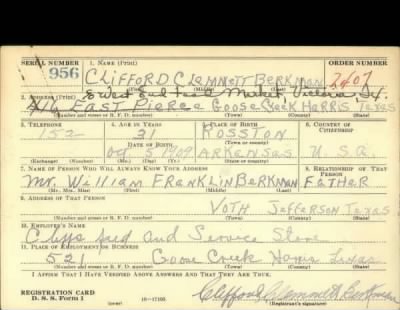 SERIAL NUMBER 1. NAME (Print) ORDER NUMBER
956 CLIFFORD CLEMNETT BERKMAN 2407
(First) (Middle) (Last)
% West End Food Market, Victoria, Tex.
2. ADDRESS (Print)
416 EAST PIERCE GOOSE CREEK HARRIS TEXAS
(Number and street or R. F. D. number) (Town) (County) (State)
3. TELEPHONE 4. AGE IN YEARS 5. PLACE OF BIRTH 6. COUNTRY OF CITIZENSHIP
152 31 ROSSTON
DATE OF BIRTH (Town or county)
Oct. 5 1909 ARKANSAS U.S.A.
(Exchange) (Number) (Mo.) (Day) (Yr.) (State or country)
7. NAME OF PERSON WHO WILL ALWAYS KNOW YOUR ADDRESS 8. RELATIONSHIP OF THAT PERSON
Mr. William FRANKLIN BERKMAN FATHER
(Mr., Mrs., Miss) (First) (Middle) (Last)
9. ADDRESS OF THAT PERSON
VOTH JEFFERSON TEXAS
(Number and street or R. F. D. number) (Town) (County) (State)
10. EMPLOYER'S NAME
Cliffs Feed and Service Store
11. PLACE OF EMPLOYMENT OR BUSINESS
521 Goose Creek Harris Texas
(Number and street or R. F. D. number) (Town) (County) (State)
I AFFIRM THAT I HAVE VERIFIED ABOVE ANSWERS AND THAT THEY ARE TRUE.
REGISTRATION CARD
D. S. S. Form 1 16—17105 Clifford Clemnett Berkman
(Registrant's signature)